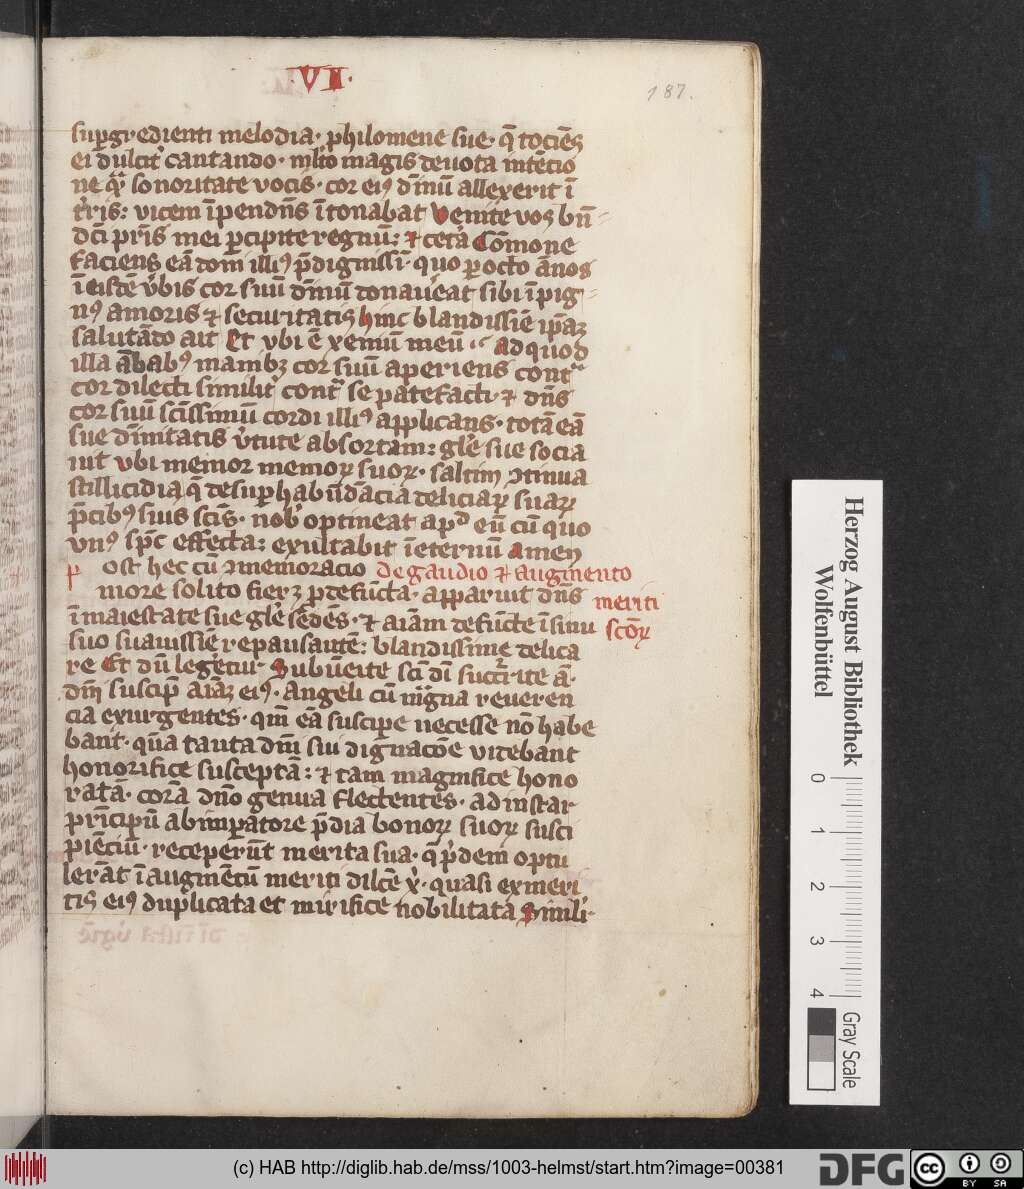 ·VI·
187.
suꝑgredienti melodia· philomene sue· q̄ tociēs
ei dulcit᷒ cantando· ml̄to magis deuota intēcio
ne q̄ sonoritate vocis· cor eiꝰ dīnū allexerit ī
t᷒ris: vicem īpendn̄s ītonabat Uenite vos bn̄=
dc̄i pr̄is mei ꝑcipite regnū: ⁊ ceta᷒ Com̄one
faciens eā dom̄ illiꝰ p̄dignissī· quo ꝑ octo ānos
ī eisdē v᷒bis cor suū dīnū donaueat sibi ī pig=
nꝰ amoris ⁊ securitatis hinc blandissīe ip̄aꝫ
salutādo ait Et vbi ē xeniū meū Ad quod
illa ābabꝰ manibꝫ cor suū aperiens cont᷒
cor dilecti similit᷒ cont᷒ se patefacti· ⁊ dn̄s
cor suū sc̄issimū cordi illiꝰ applicans· totā eā
sue dīnitatis v᷒tute absortam: gl̄e sue socia
uit Vbi memor memoꝝ suoꝝ· saltim ꝯtinua
stillicidia q̄ de suꝑhabūdācia deliciaꝝ suaꝝ
p̄cibꝰ suis sc̄is· nob᷒ optineat apᵈ eū cū quo
vnꝰ sp̄c effecta: exultabit ī eternū Amen
ost hec cū ꝯmemoracio de gaudio ⁊ augmento
more solito fieꝫ ꝓ defūcta· apparuit dn̄s meriti
ī maiestate sue gl̄e sedēs· ⁊ aīam defūcte ī sinu sc̄oꝝ
suo suauissīe repausantē: blandissime delica
re Et dū legetur· Subuēite sc̄i dī succ᷒rite ā·
dn̄i suscip̄ aīaꝫ eiꝰ· Angeli cū mgna reueren
cia exurgentes· qm̄ eā suscipe necesse nō habe
bant· quā tanta dn̄i sui dignacōe videbant
honorifice susceptā: ⁊ tam magnifice hono
ratā· corā dn̄o genua flectentes· ad instar
prīcipū ab imꝑatore p̄dia bonoꝝ suoꝝ susci
piēciū· receperūt merita sua· q̄ p᷒dem optu
lerāt ī augmētū meriti dilc̄e x᷒· quasi ex meri
tis eiꝰ duplicata et mirifice nobilitata Simili·
Herzog August Bibliothek
Wolfenbüttel
0 1 2 3 4
Gray Scale
(c) HAB http://diglib.hab.de/mss/1003-helmst/start.htm?image=00381
DFG
cc
BY SA